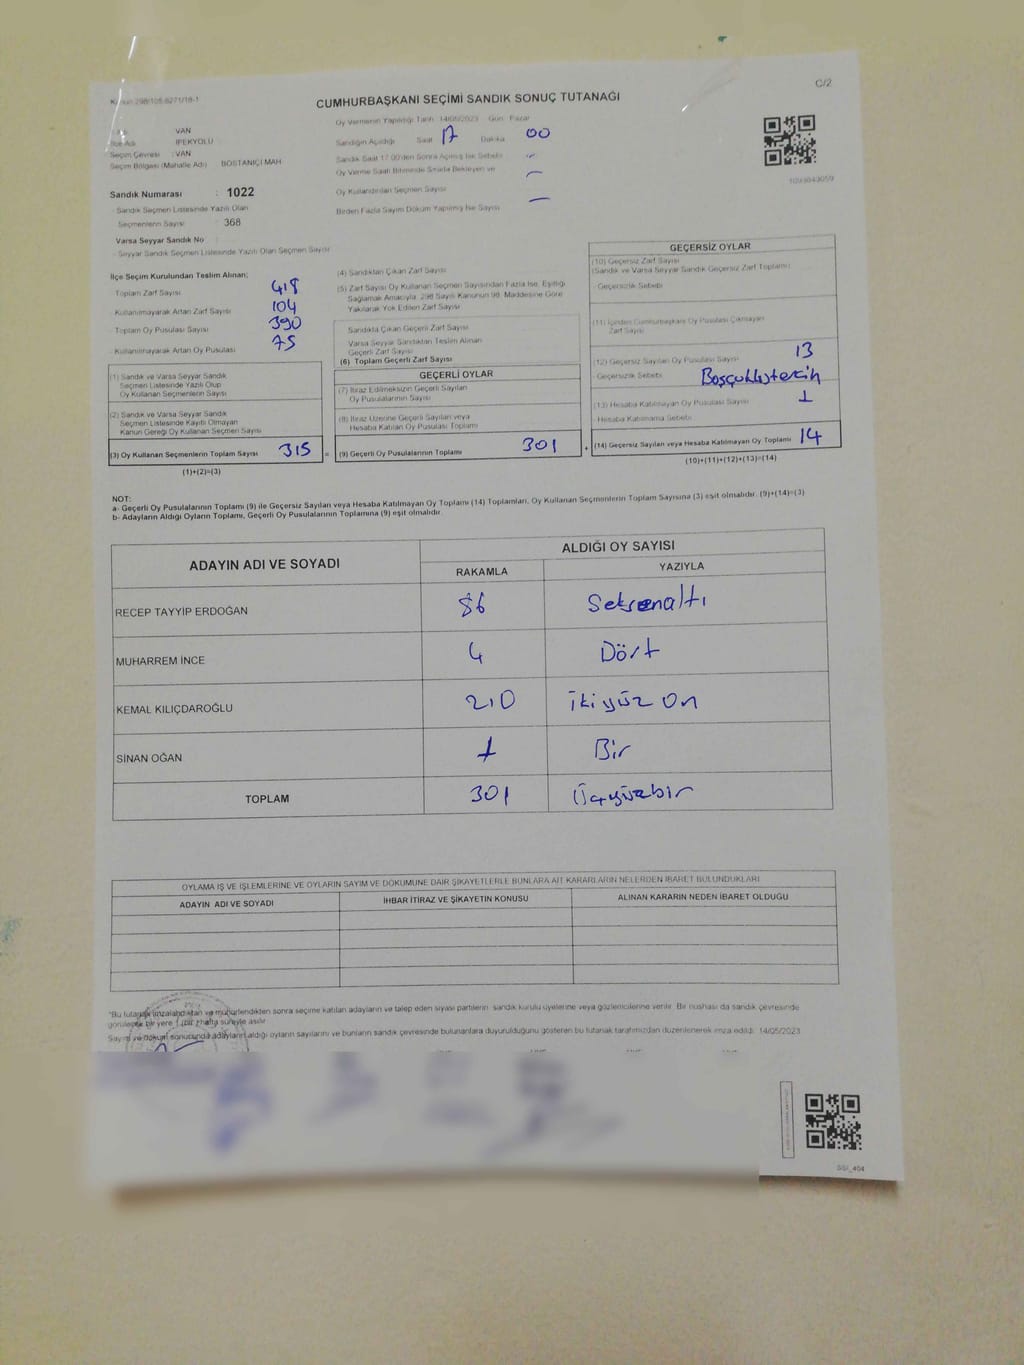 C/2
CUMHURBAŞKANI SEÇİMİ SANDIK SONUÇ TUTANAĞI
VAN
İlçe Adı İPEKYOLU
Seçim Çevresi : VAN
Seçim Bölgesi (Mahalle Adı) BOSTANİÇİ MAH
Sandık Numarası : 1022
Sandık Seçmen Listesinde Yazılı Olan
Seçmenlerin Sayısı : 368
Varsa Seyyar Sandık No
Seyyar Sandık Seçmen Listesinde Yazılı Olan Seçmen Sayısı
Oy Vermenin Yapıldığı Tarih 14/05/2023 Gün Pazar
Sandığın Açıldığı Saat 17 Dakika 00
Sandık Saat 17.00'den Sonra Açılmış İse Sebebi –
Oy Verme Saati Bitiminde Sırada Bekleyen ve –
Oy Kullandırılan Seçmen Sayısı
Birden Fazla Sayım Döküm Yapılmış İse Sayısı –
İlçe Seçim Kurulundan Teslim Alınan;
Toplam Zarf Sayısı 418
Kullanılmayarak Artan Zarf Sayısı 104
Toplam Oy Pusulası Sayısı 390
Kullanılmayarak Artan Oy Pusulası 75
(1) Sandık ve Varsa Seyyar Sandık
Seçmen Listesinde Yazılı Olup
Oy Kullanan Seçmenlerin Sayısı
(2) Sandık ve Varsa Seyyar Sandık
Seçmen Listesinde Kayıtlı Olmayan
Kanun Gereği Oy Kullanan Seçmen Sayısı
(3) Oy Kullanan Seçmenlerin Toplam Sayısı 315 =
(1)+(2)=(3)
(4) Sandıktan Çıkan Zarf Sayısı
(5) Zarf Sayısı Oy Kullanan Seçmen Sayısından Fazla İse, Eşitliği
Sağlamak Amacıyla, 298 Sayılı Kanunun 98. Maddesine Göre
Yakılarak Yok Edilen Zarf Sayısı
Sandıkta Çıkan Geçerli Zarf Sayısı
Varsa Seyyar Sandıktan Teslim Alınan
Geçerli Zarf Sayısı
(6) Toplam Geçerli Zarf Sayısı
GEÇERLİ OYLAR
(7) İtiraz Edilmeksizin Geçerli Sayılan
Oy Pusulalarının Sayısı
(8) İtiraz Üzerine Geçerli Sayılan veya
Hesaba Katılan Oy Pusulası Toplamı
(9) Geçerli Oy Pusulalarının Toplamı 301 +
GEÇERSİZ OYLAR
(10) Geçersiz Zarf Sayısı
(Sandık ve Varsa Seyyar Sandık Geçersiz Zarf Toplamı)
Geçersizlik Sebebi
(11) İçinden Cumhurbaşkanı Oy Pusulası Çıkmayan
Zarf Sayısı
(12) Geçersiz Sayılan Oy Pusulası Sayısı 13
Geçersizlik Sebebi
(13) Hesaba Katılmayan Oy Pusulası Sayısı 1
Hesaba Katılmama Sebebi
(14) Geçersiz Sayılan veya Hesaba Katılmayan Oy Toplamı 14
(10)+(11)+(12)+(13)=(14)
NOT:
a- Geçerli Oy Pusulalarının Toplamı (9) ile Geçersiz Sayılan veya Hesaba Katılmayan Oy Toplamı (14) Toplamları, Oy Kullanan Seçmenlerin Toplam Sayısına (3) eşit olmalıdır. (9)+(14)=(3)
b- Adayların Aldığı Oyların Toplamı, Geçerli Oy Pusulalarının Toplamına (9) eşit olmalıdır.
ADAYIN ADI VE SOYADI ALDIĞI OY SAYISI
RAKAMLA YAZIYLA
RECEP TAYYİP ERDOĞAN 86 Seksenaltı
MUHARREM İNCE 4 Dört
KEMAL KILIÇDAROĞLU 210 İkiyüz On
SİNAN OĞAN 1 Bir
TOPLAM 301 Üçyüzbir
OYLAMA İŞ VE İŞLEMLERİNE VE OYLARIN SAYIM VE DÖKÜMÜNE DAİR ŞİKAYETLERLE BUNLARA AİT KARARLARIN NELERDEN İBARET BULUNDUKLARI
ADAYIN ADI VE SOYADI İHBAR İTİRAZ VE ŞİKAYETİN KONUSU ALINAN KARARIN NEDEN İBARET OLDUĞU
*Bu tutanak imzalandıktan ve mühürlendikten sonra seçime katılan adayların ve talep eden siyasi partilerin sandık kurulu üyelerine veya gözlemcilerine verilir. Bir nüshası da sandık çevresinde
görülecek bir yere 1 (bir) hafta süreyle asılır
Sayım ve döküm sonucunda adayların aldığı oyların sayılarını ve bunların sandık çevresinde bulunanlara duyurulduğunu gösteren bu tutanak tarafımızdan düzenlenerek imza edildi. 14/05/2023